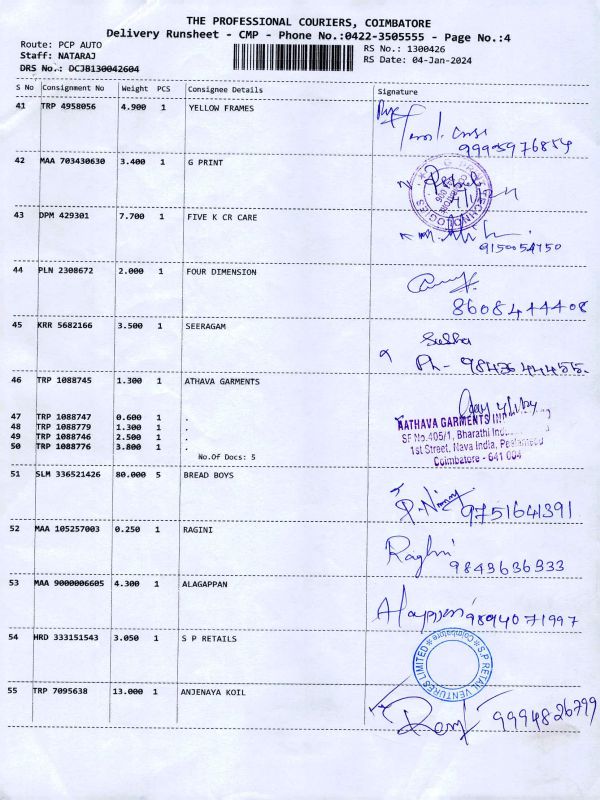 THE PROFESSIONAL COURIERS, COIMBATORE
Delivery Runsheet - CMP - Phone No.:0422-3505555 - Page No.:4
Route: PCP AUTO
Staff: NATARAJ
DRS No.: DCJB130042604
RS No.: 1300426
RS Date: 04-Jan-2024
S No Consignment No Weight PCS Consignee Details Signature
41 TRP 4958056 4.900 1 YELLOW FRAMES
42 MAA 703430630 3.400 1 G PRINT
43 DPM 429301 7.700 1 FIVE K CR CARE
9150054750
44 PLN 2308672 2.000 1 FOUR DIMENSION
8608444408
45 KRR 5682166 3.500 1 SEERAGAM
Subha
Ph - 9843644455.
46 TRP 1088745 1.300 1 ATHAVA GARMENTS
47 TRP 1088747 0.600 1 .
48 TRP 1088779 1.300 1 .
49 TRP 1088746 2.500 1 .
50 TRP 1088776 3.800 1 .
No.Of Docs: 5
AATHAVA GARMENTS
SF No.405/1, Bharathi
1st Street, Nava India,
Coimbatore - 641 004
51 SLM 336521426 80.000 5 BREAD BOYS
9751641391
52 MAA 105257003 0.250 1 RAGINI
Raghni
9843636333
53 MAA 9000006605 4.300 1 ALAGAPPAN
9894071997
54 HRD 333151543 3.050 1 S P RETAILS
S.P RETAIL VENTURES LIMITED
Coimbatore
55 TRP 7095638 13.000 1 ANJENAYA KOIL
9994826799